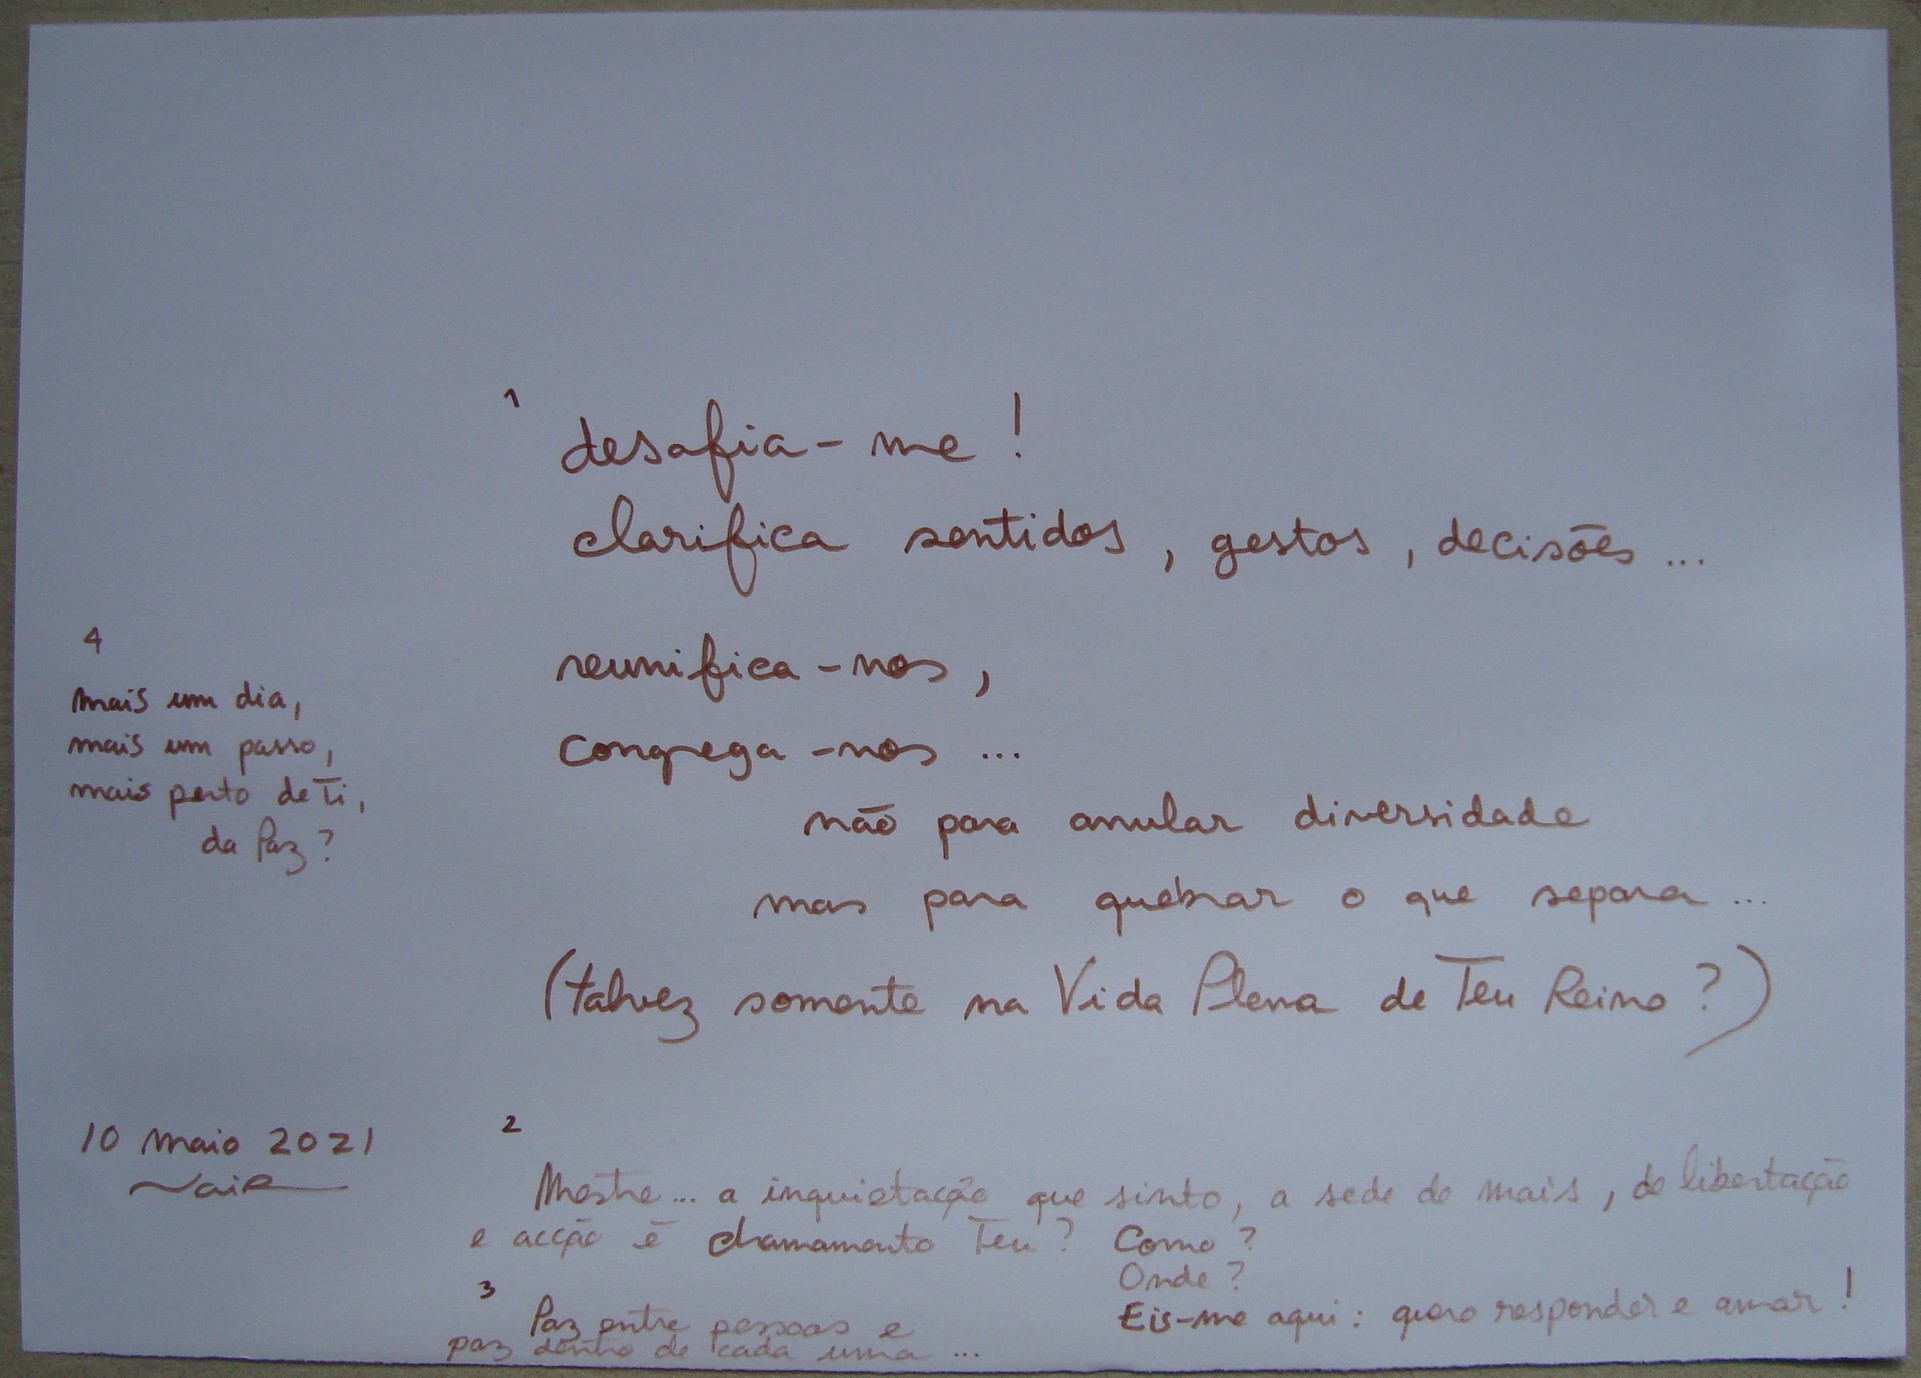 1
desafia-me!
clarifica sentidos, gestos, decisões...
reunifica-nos,
congrega-nos...
não para anular diversidade
mas para quebrar o que separa...
(talvez somente na Vida Plena de Teu Reino?)
2
Mestre... a inquietação que sinto, a sede de mais, de libertação
e acção é chamamento Teu? Como?
Onde?
Eis-me aqui: quero responder e amar!
3
Paz entre pessoas e
paz dentro de cada uma...
4
mais um dia,
mais um passo,
mais perto de Ti,
da Paz?
10 maio 2021
Nair